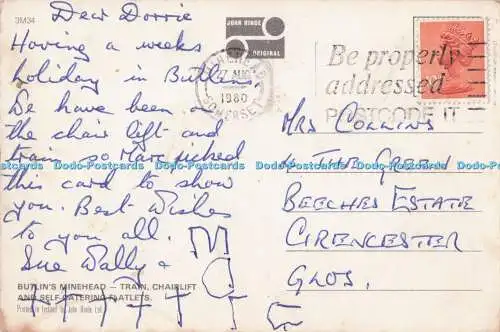 3M34
Dear Dorrie
Having a weeks
holiday in Butlins
We have been on
the chair lift and
train so Mark picked
this card to show
you. Best Wishes
to you all.
Sue Wally &
MARK
BUTLIN'S MINEHEAD — TRAIN, CHAIRLIFT
AND SELF-CATERING FLATLETS.
Printed in Ireland by John Hinde Ltd.
JOHN HINDE
ORIGINAL
MINEHEAD
27 AUG
1980
SOMERSET
Be properly
addressed
POSTCODE IT
MRS COLLINS
THE GREEN
BEECHES ESTATE
CIRENCESTER
GLOS.
Dodo-Postcards Dodo-Postcards Dodo-Postcards Dodo-Postcards Dodo-Postcards